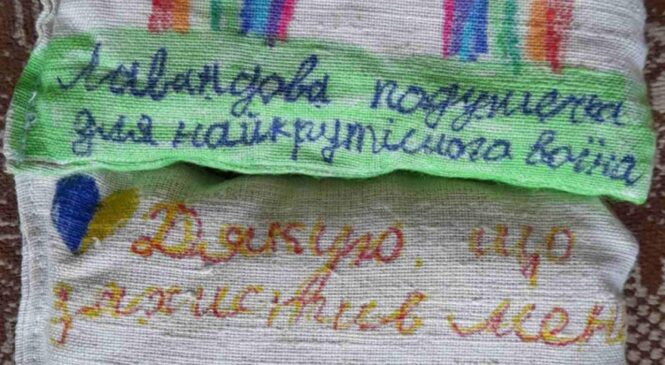 Лавандова подушечка
для найкрутішого воїна
Дякую, що
захистив мен